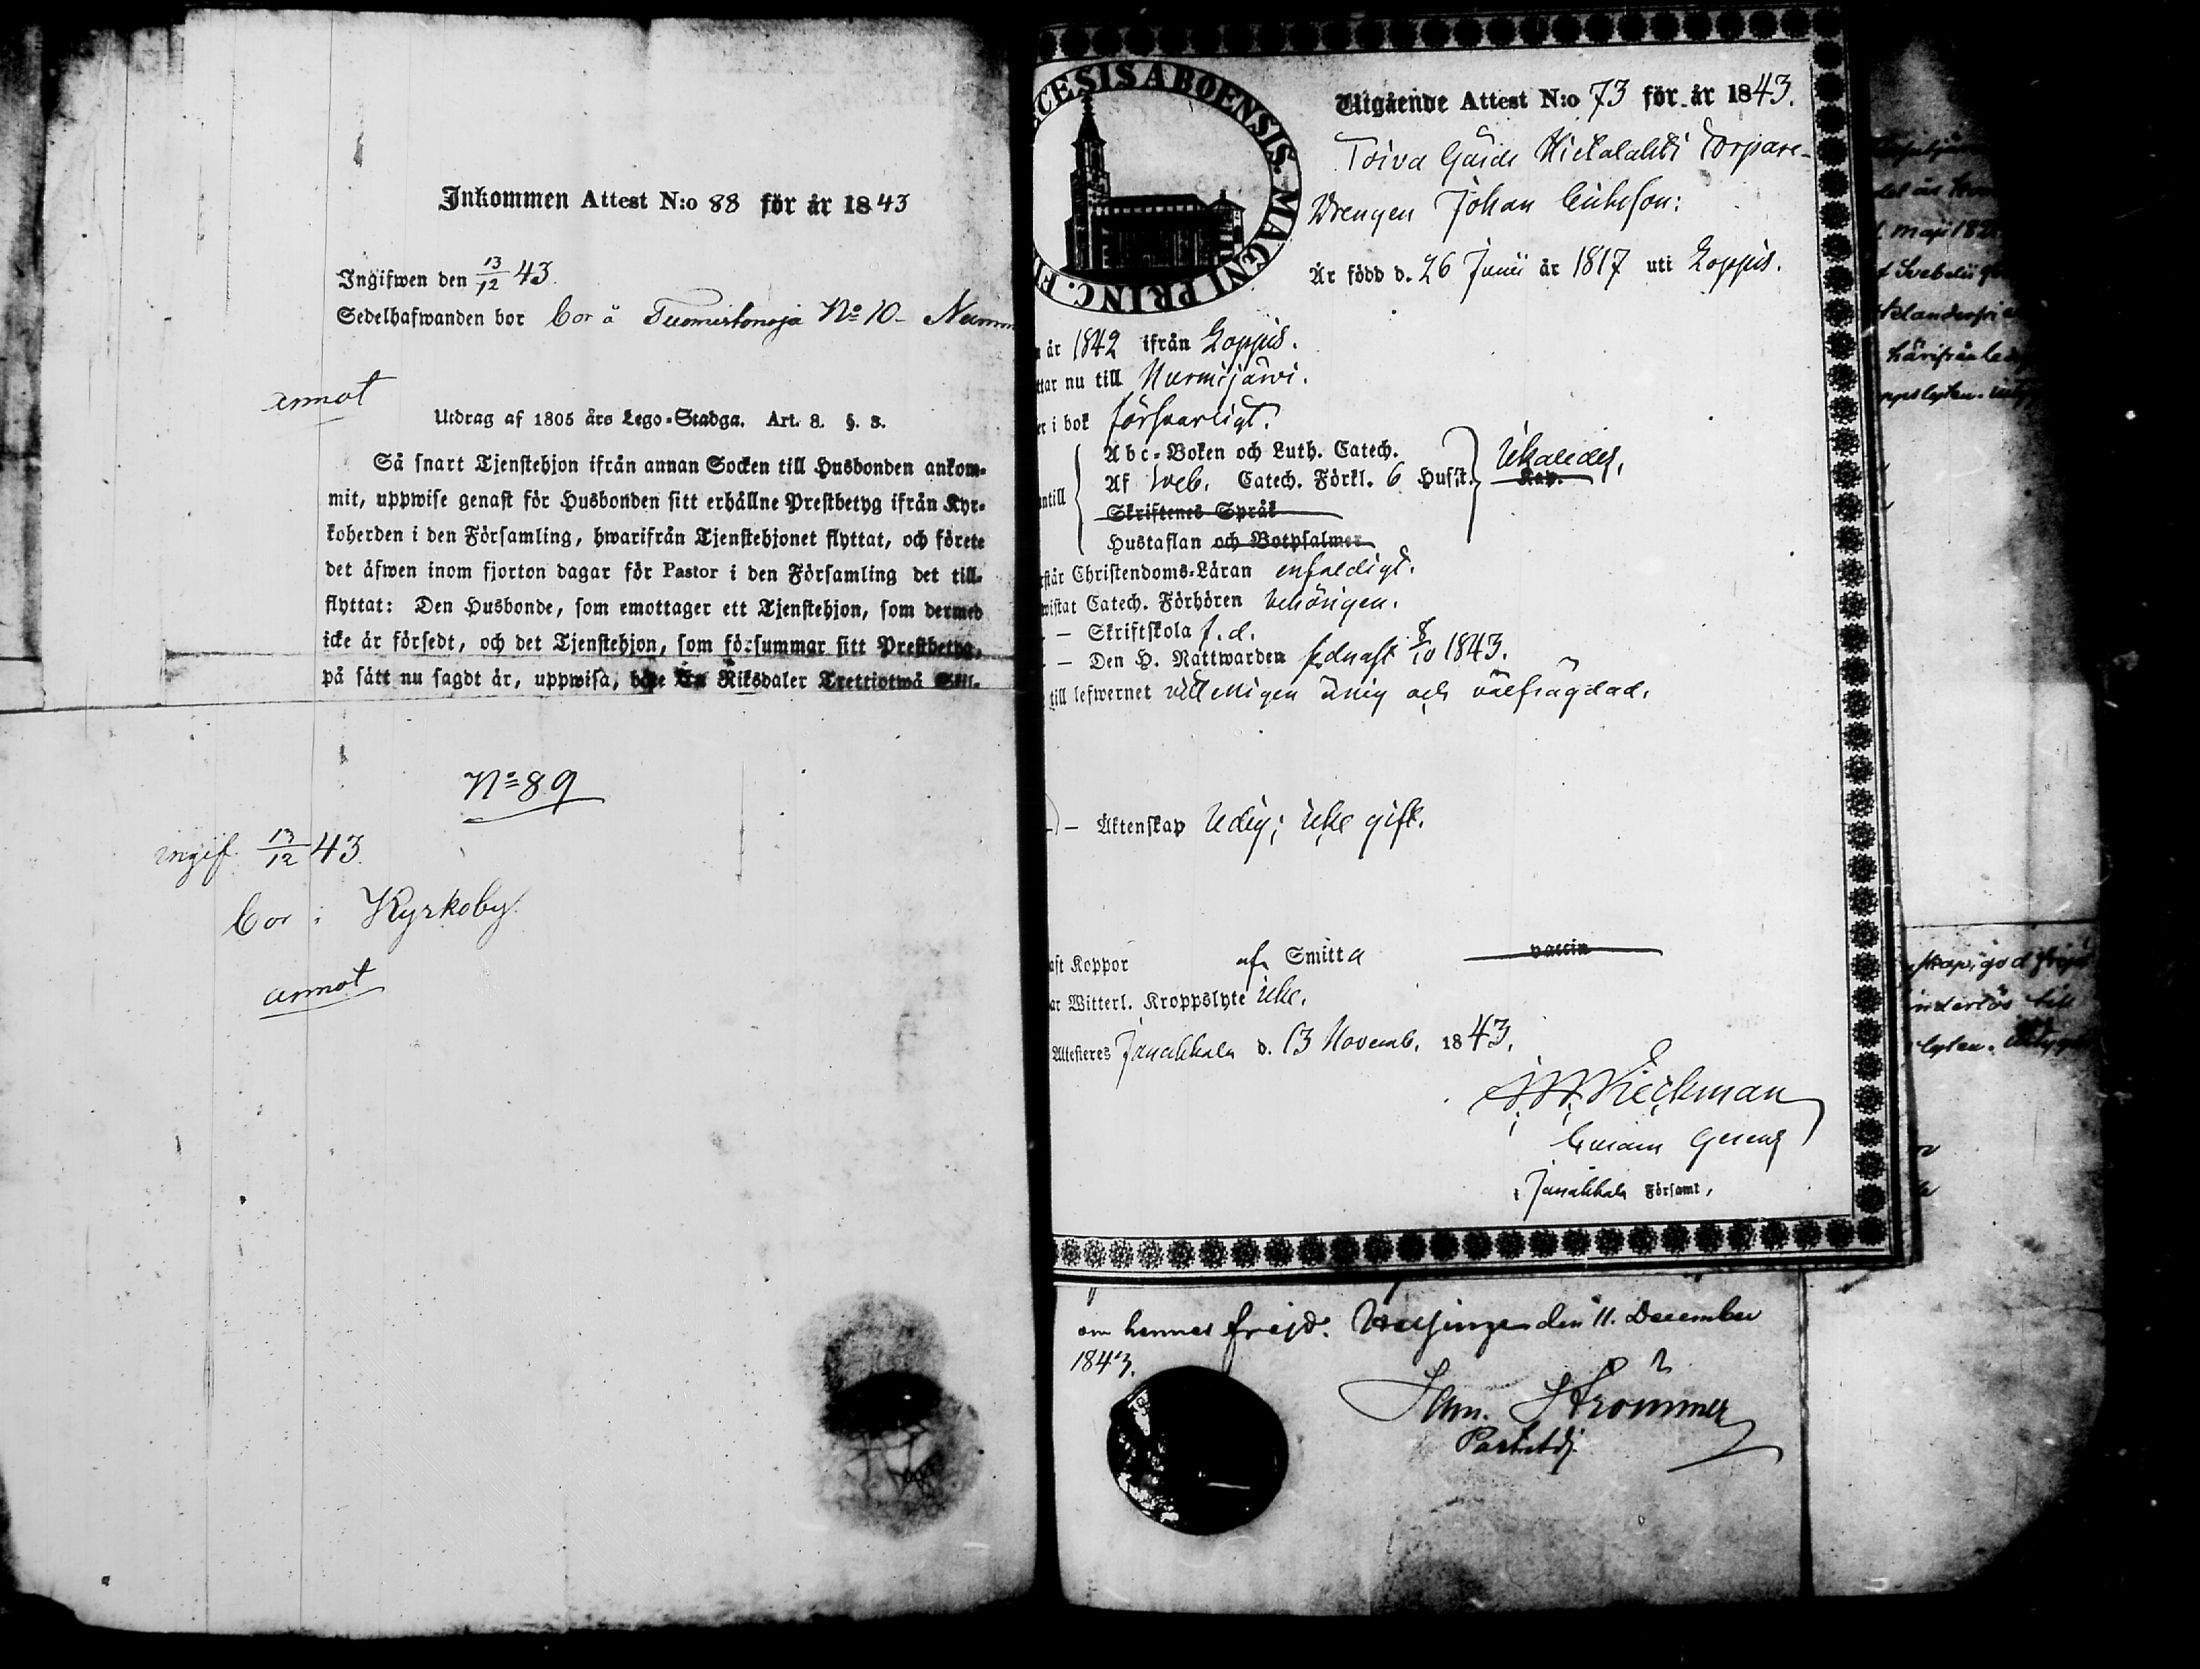 Inkommen Attest N:o 88 för år 1843
Ingifwen den 13/12 43.
Sedelhafwanden bor bor å Tuomistonoja No 10 - Numm
annot
Utdrag af 1805 års Lego-Stadga. Art. 8. §. 3.
Så snart Tjenstehjon ifrån annan Socken till Husbonden ankom-
mit, uppwise genast för Husbonden sitt erhållne Prestbetyg ifrån Kyr-
koherden i den Församling, hwarifrån Tjenstehjonet flyttat, och förete
det äfwen inom fjorton dagar för Pastor i den Församling det till-
flyttat: Den Husbonde, som emottager ett Tjenstehjon, som dermed
icke är försedt, och det Tjenstehjon, som försummar sitt Prestbetyg,
på sätt nu sagdt är, uppwisa, böte En Riksdaler Trettiotwå Skil-
No 89
ingif 13/12 43.
bor i Kyrkoby.
annot
CESIS ABOENSIS. MAGNI PRINC. F
Utgående Attest N:o 73 för år 1843.
Toiva Gårds Torpare-
Drengen Johan
Är född d. 26 Junii år 1817 uti Loppis.
år 1842 ifrån Loppis.
ttar nu till Nurmijärvi.
er i bok försvarligt.
Abc-Boken och Luth. Catech.
Af Sveb. Catech. Förkl. 6 Hufst. Kap.
antill
Skriftenes Språk
Hustaflan och Botpsalmer
rstår Christendoms-Läran enfaldigt.
wistat Catech. Förhören behörigen.
- Skriftskola f. d.
- Den H. Nattwarden sednast 8/10 1843.
till lefwernet ärlig och välfrägdad.
- Äktenskap ledig; icke gift.
aft Koppor af Smitta vaccin
ar Witterl. Kroppslyte icke.
Attesteres Janakkala d. 13 Novemb. 1843.
Wieckman
i Janakkala Församl,
om hennes frejd. Helsinge den 11. December
1843.
Sam. Strömmer